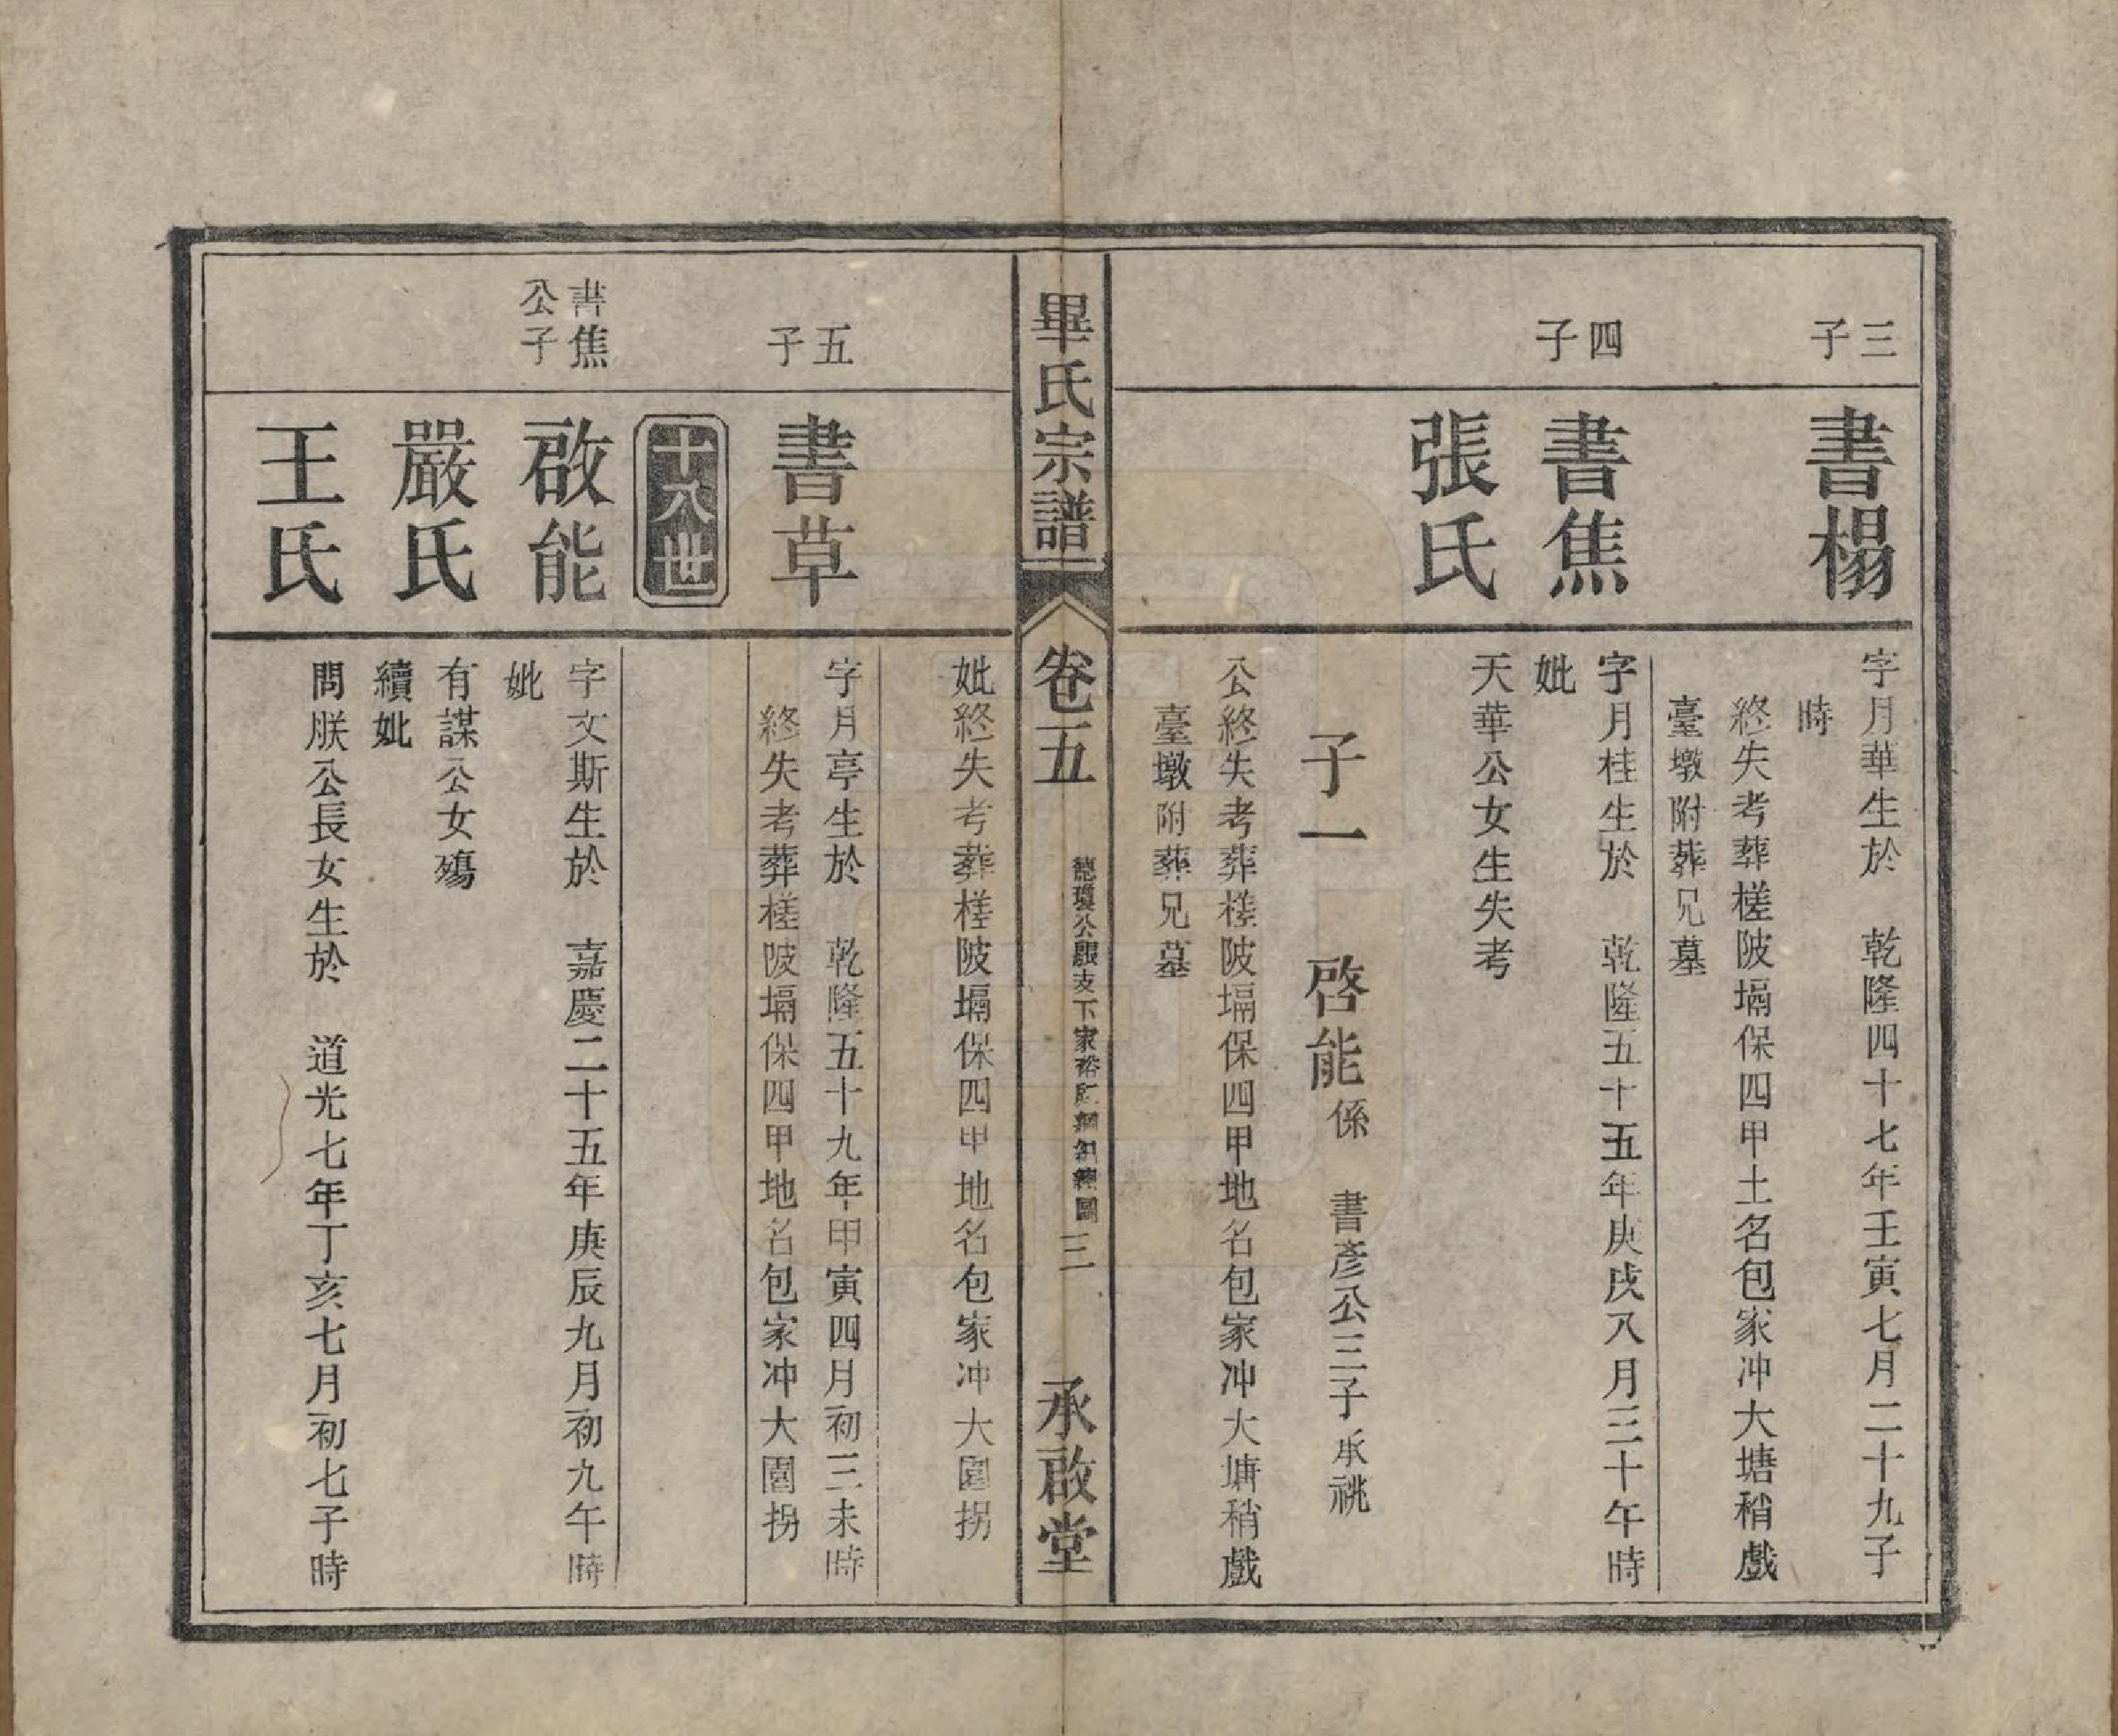 三
子
書榻
字月華生於　乾隆四十七年壬寅七月二十九子
時
終失考葬槎陂塥保四甲土名包家冲大塘稍戲
臺墩附葬兄墓
四
子
書焦
字月桂生於　乾隆五十五年庚戌八月三十午時
妣
張氏
天華公女生失考
子一　啓能係　書彥公三子承祧
公終失考葬槎陂塥保四甲地名包家冲大塘稍戲
臺墩附葬兄墓
畢氏宗譜
卷五
公
支下家裕
圖
三
承啟堂
妣終失考葬槎陂塥保四甲地名包家冲大園拐
五
子
書草
字月亭生於　乾隆五十九年甲寅四月初三未時
終失考葬槎陂塥保四甲地名包家冲大園拐
十八世
書焦
公子
啟能
字文斯生於　嘉慶二十五年庚辰九月初九午時
妣
嚴氏
有謀公女殤
續妣
王氏
問朕公長女生於　道光七年丁亥七月初七子時